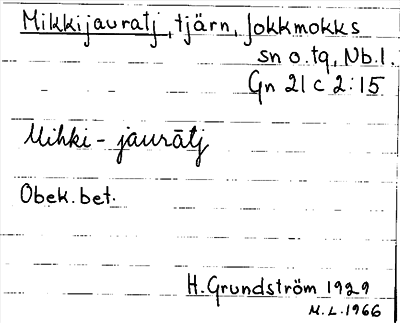 Mikkijauratj, tjärn, Jokkmokks
sn o. tg, Nb. l.
Gn 21 c 2:15
Mihki-jaurātj
Obek. bet.
H. Grundström 1929
M.L. 1966